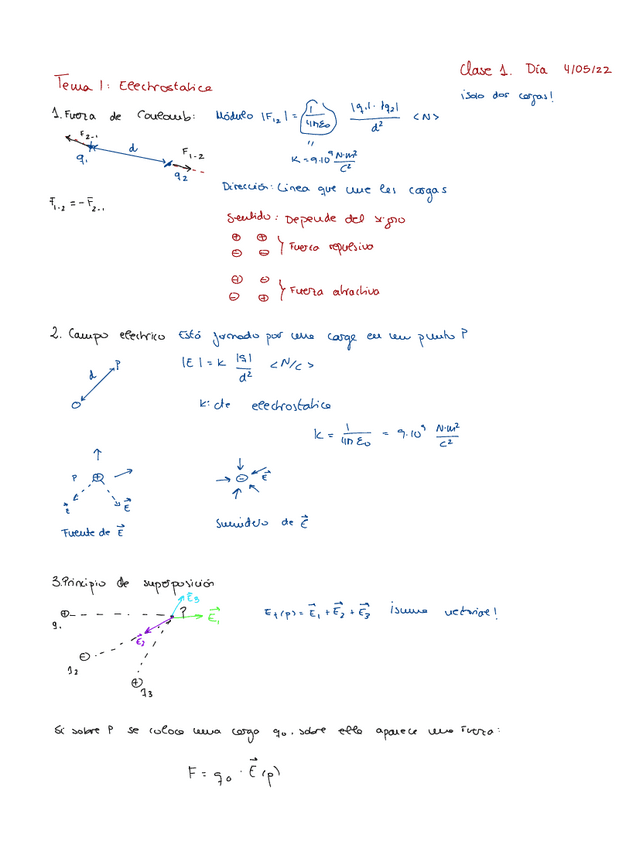 Clase 1. Día 4/05/22
Tema 1: Electrostatica
¡Solo dos cargas!
1. Fuerza de Coulomb: Módulo |F₁₂| = 1/4πε₀ |q₁|·|q₂|/d² <N>
F₂₋₁ d F₁₋₂
q₁ q₂
"
K = 9·10⁹ N·m²/C²
Dirección: Linea que une las cargas
F̄₁₋₂ = - F̄₂₋₁
Sentido: Depende del signo
⊕ ⊕
⊖ ⊖ } Fuerza repulsiva
⊕ ⊖
⊖ ⊕ } Fuerza atractiva
2. Campo electrico Está formado por una carga en un punto P
d P
|E| = K |q|/d² <N/C>
K: cte electrostatica
K = 1/4πε₀ = 9·10⁹ N·m²/C²
P ⊕ E⃗
⊖ E⃗
Fuente de E⃗
Sumidero de E⃗
3. Principio de superposición
⊕ q₁ E⃗₃ P E⃗₁
E⃗₂
⊖ q₂
⊕ q₃
Eₜ(p) = E⃗₁ + E⃗₂ + E⃗₃ ¡suma vectorial!
Si sobre P se coloca una carga q₀, sobre ella aparece una fuerza:
F = q₀ · E⃗(p)